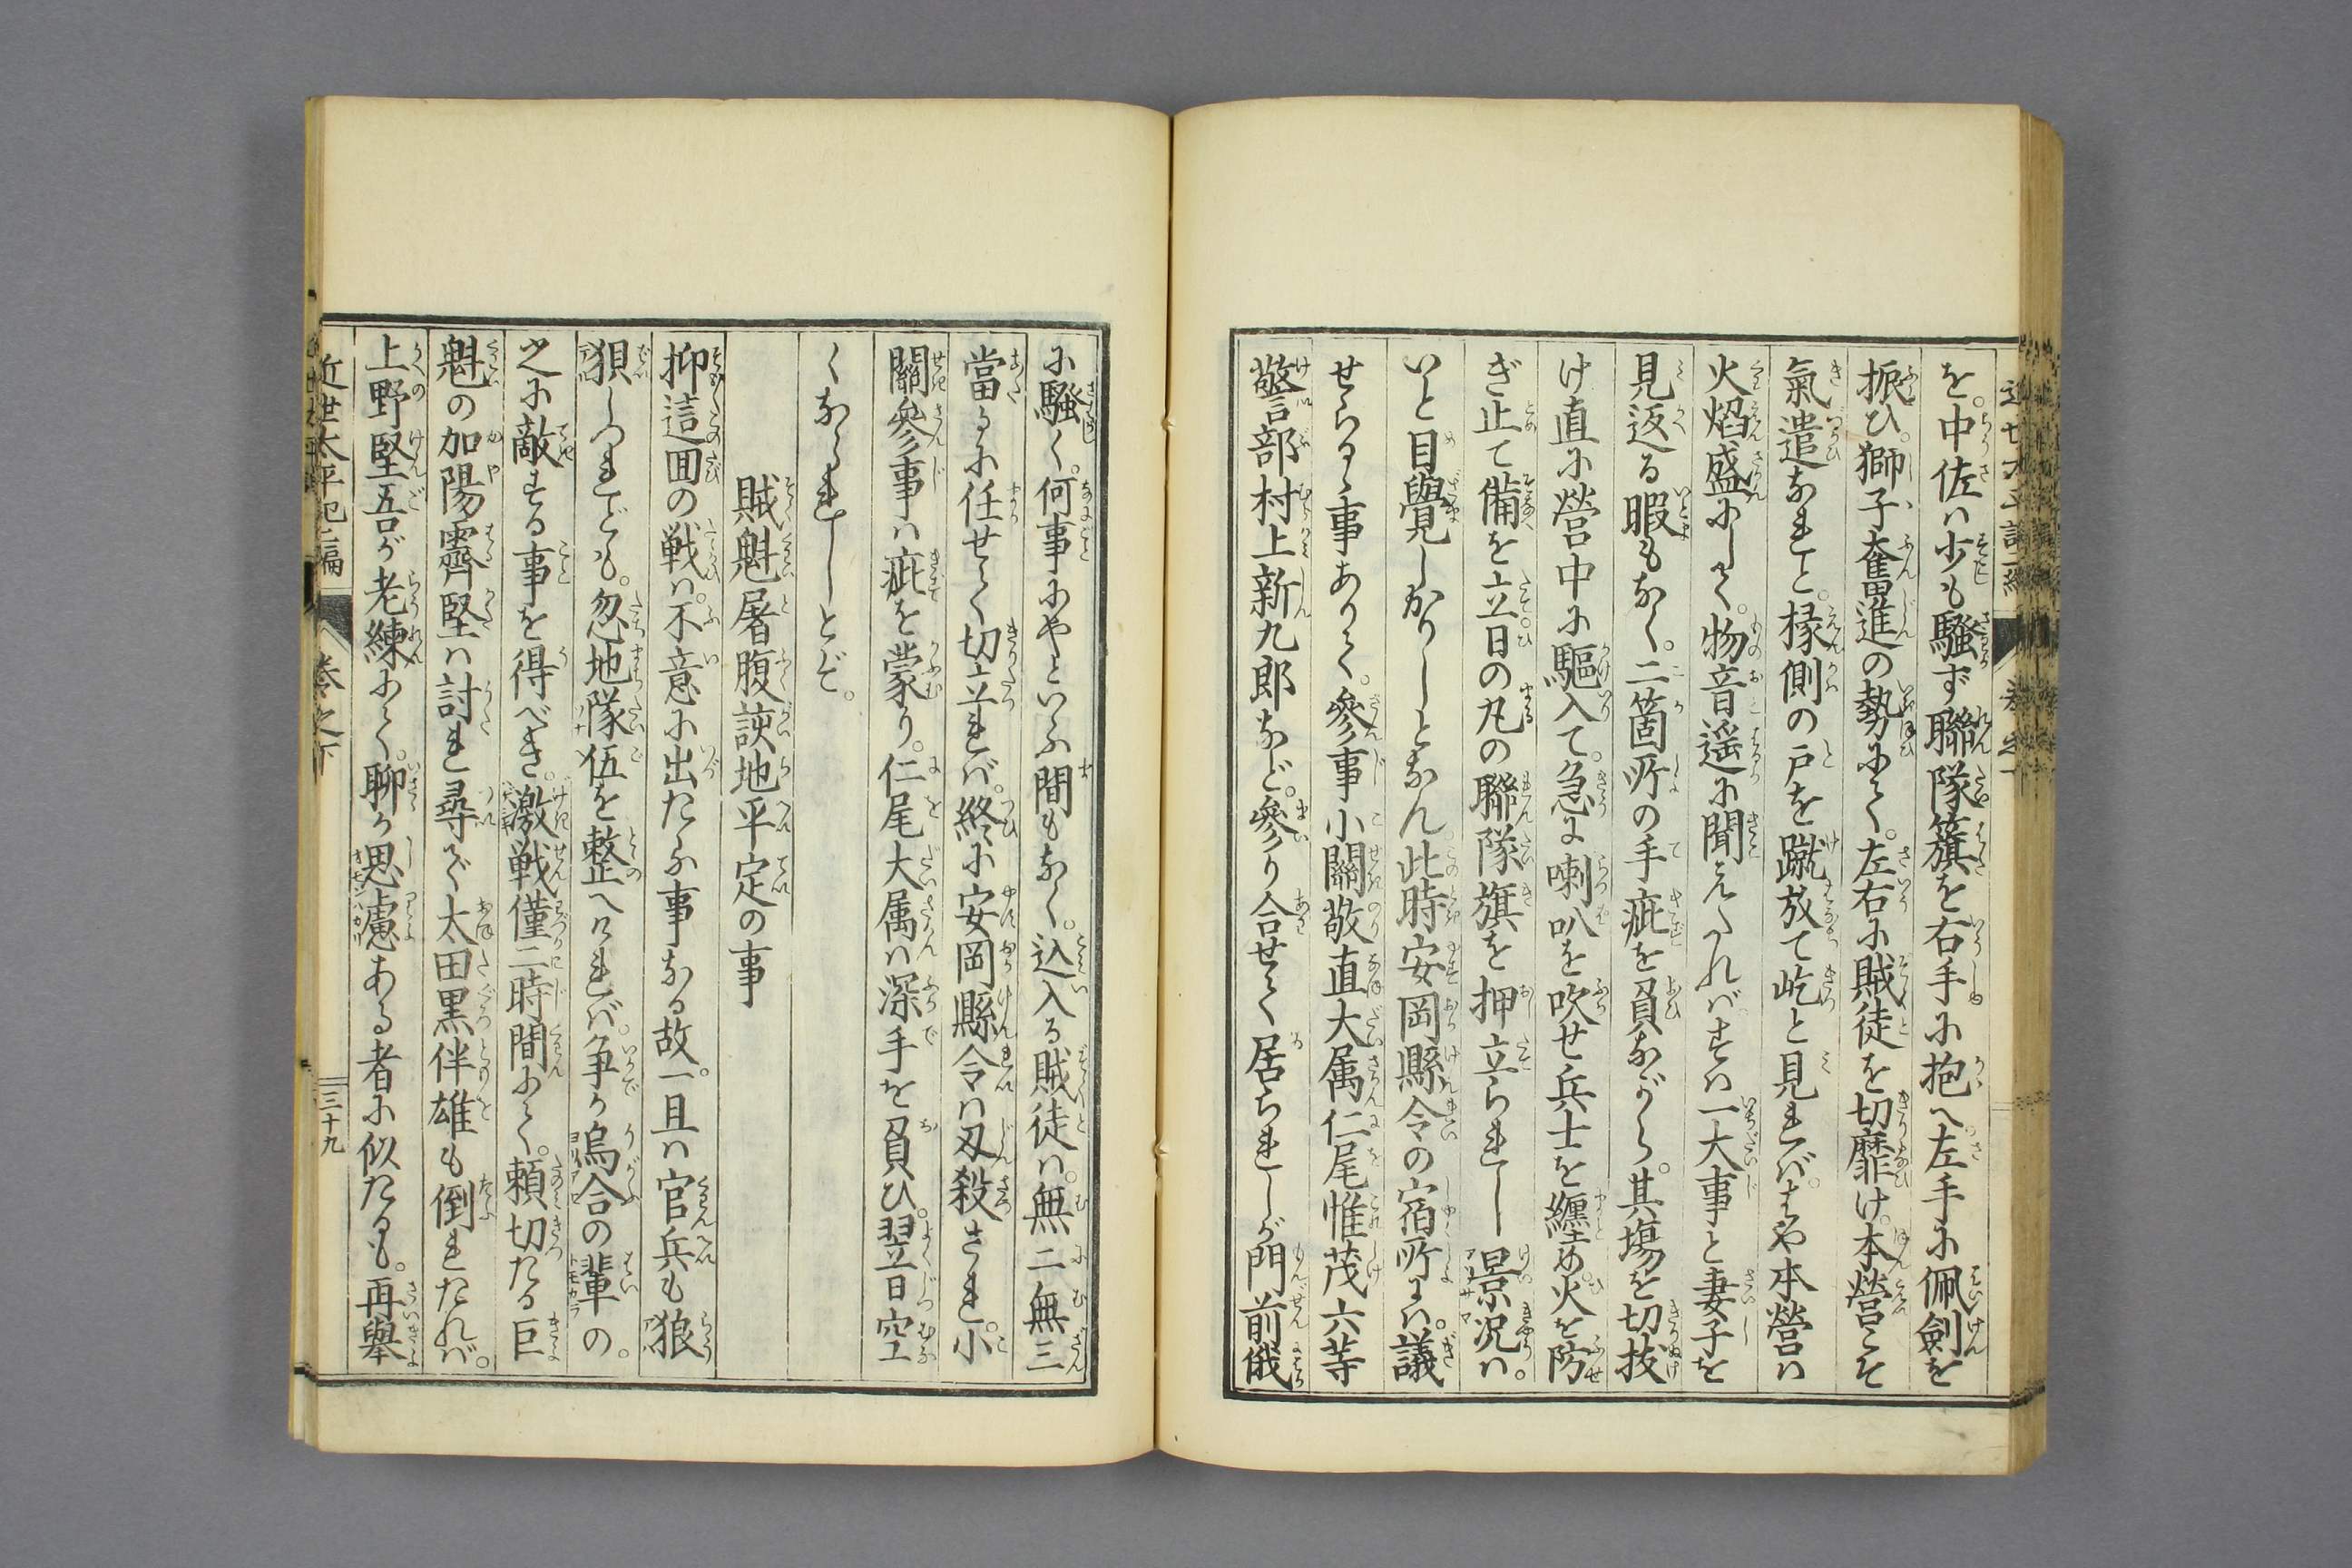 を。中佐ハ少も騒ず聯隊籏を右手に抱へ。左手に佩劍を
振ひ。獅子奮進の勢にて。左右に賊徒を切靡け。本營こそ
氣遣なれと。椽側の戸を蹴放て屹と見れバ。はや本營ハ
火焰盛にして。物音遥に聞えたれバすハ一大事と妻子を
見返る暇もなく。二箇所の手疵を負ながら。其塲を切抜
け直に營中に驅入て。急に喇叭を吹せ兵士を纏め。火を防
ぎ止て備を立。日の丸の聯隊旗を押立られし景况ハ。
いと目覺しかりしとなん。此時安岡縣令の宿所にハ。議
せらるゝ事ありて。參事小關敬直大属仁尾惟茂六等
警部村上新九郎など。參り合せて居られしが門前俄
に騒く。何事にやといふ間もなく。込入る賊徒ハ。無二無三
當るに任せて切立れバ。終に安岡縣令ハ刄殺され。小
關參事ハ疵を蒙り。仁尾大属ハ深手を負ひ。翌日空
くなられしとぞ。
賊魁屠腹諛地平定の事
抑這囬の戦ハ。不意に出たる事なる故。一旦ハ官兵も狼
狽しつれども。忽地隊伍を整へけれバ。争か烏合の輩の。
之に敵する事を得べき。激戦僅二時間にて。頼切たる巨
魁の加陽霽堅ハ討れ尋で太田黒伴雄も倒れたれバ。
上野堅吾が老練にて。聊か思慮ある者に似たるも。再舉
近世太平記二編
巻之下
三十九